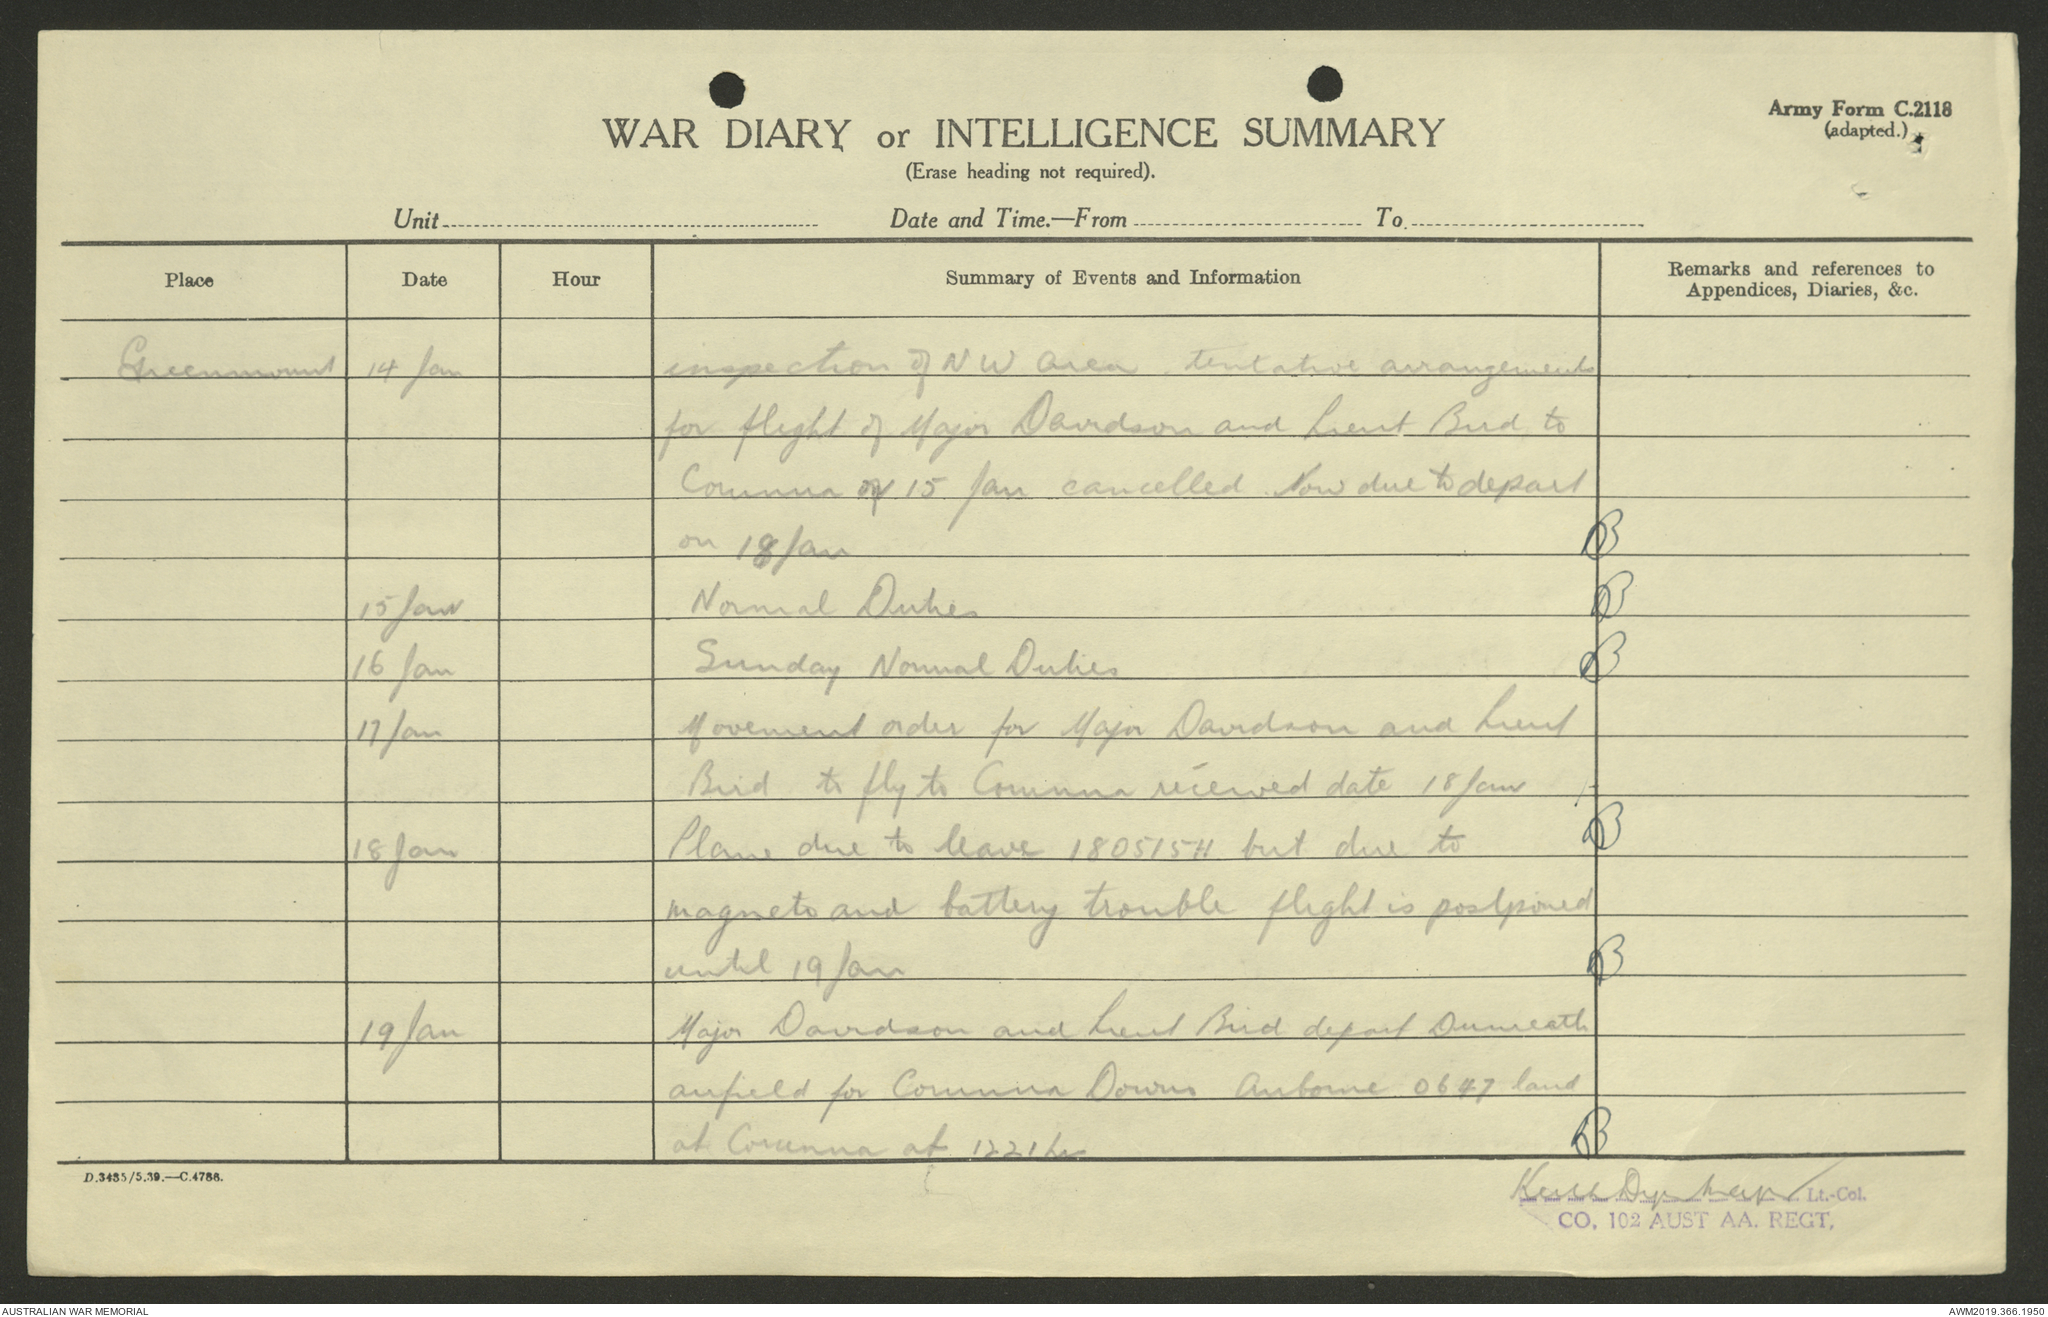 Army Form C.2118
(adapted.)
WAR DIARY or INTELLIGENCE SUMMARY
(Erase heading not required).
Unit Date and Time.—From To
Place Date Hour Summary of Events and Information Remarks and references to Appendices, Diaries, &c.
Greenmount 14 Jan inspection of NW area. tentative arrangements
for flight of Major Davidson and Lieut Bird to
Corunna on 15 Jan cancelled. Now due to depart
on 18 Jan
15 Jan Normal Duties
16 Jan Sunday Normal Duties
17 Jan Movement order for Major Davidson and Lieut
Bird to fly to Corunna received date 18 Jan
18 Jan Plane due to leave 180515H but due to
magneto and battery trouble flight is postponed
until 19 Jan
19 Jan Major Davidson and Lieut Bird depart Dunreath
airfield for Corunna Downs Airborne 0647 land
at Corunna at 1221 hr
D.3435/5.39.—C.4786.
Lt.-Col.
CO. 102 AUST AA. REGT.
AUSTRALIAN WAR MEMORIAL AWM2019.366.1950